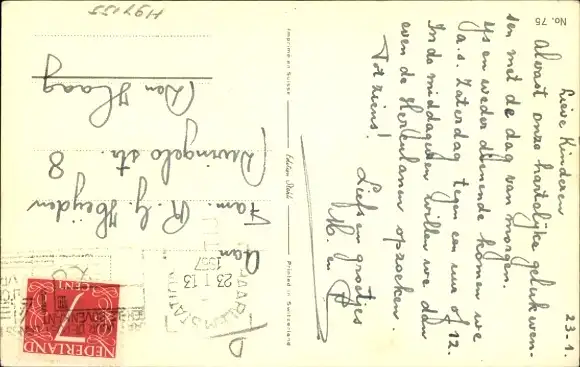 No. 75
23-1.
Lieve Kinderen
Alvast onze hartelijke gelukwen-
sen met de dag van morgen.
IJs en weder dienende komen we
j.a.s. Zaterdag tegen een uur of 12.
In de middaguren willen we dan
even de Herkulanen opzoeken.
Tot ziens!
Liefs en groetjes
M. en P
Imprimé en Suisse
Edition Stehli
Printed in Switzerland
Aan
Fam. R. G. Heijden
Dwingelo str. 8
Den Haag
H97155
HAARLEM STATION
23 I 13
1957
NEDERLAND
7
CENT